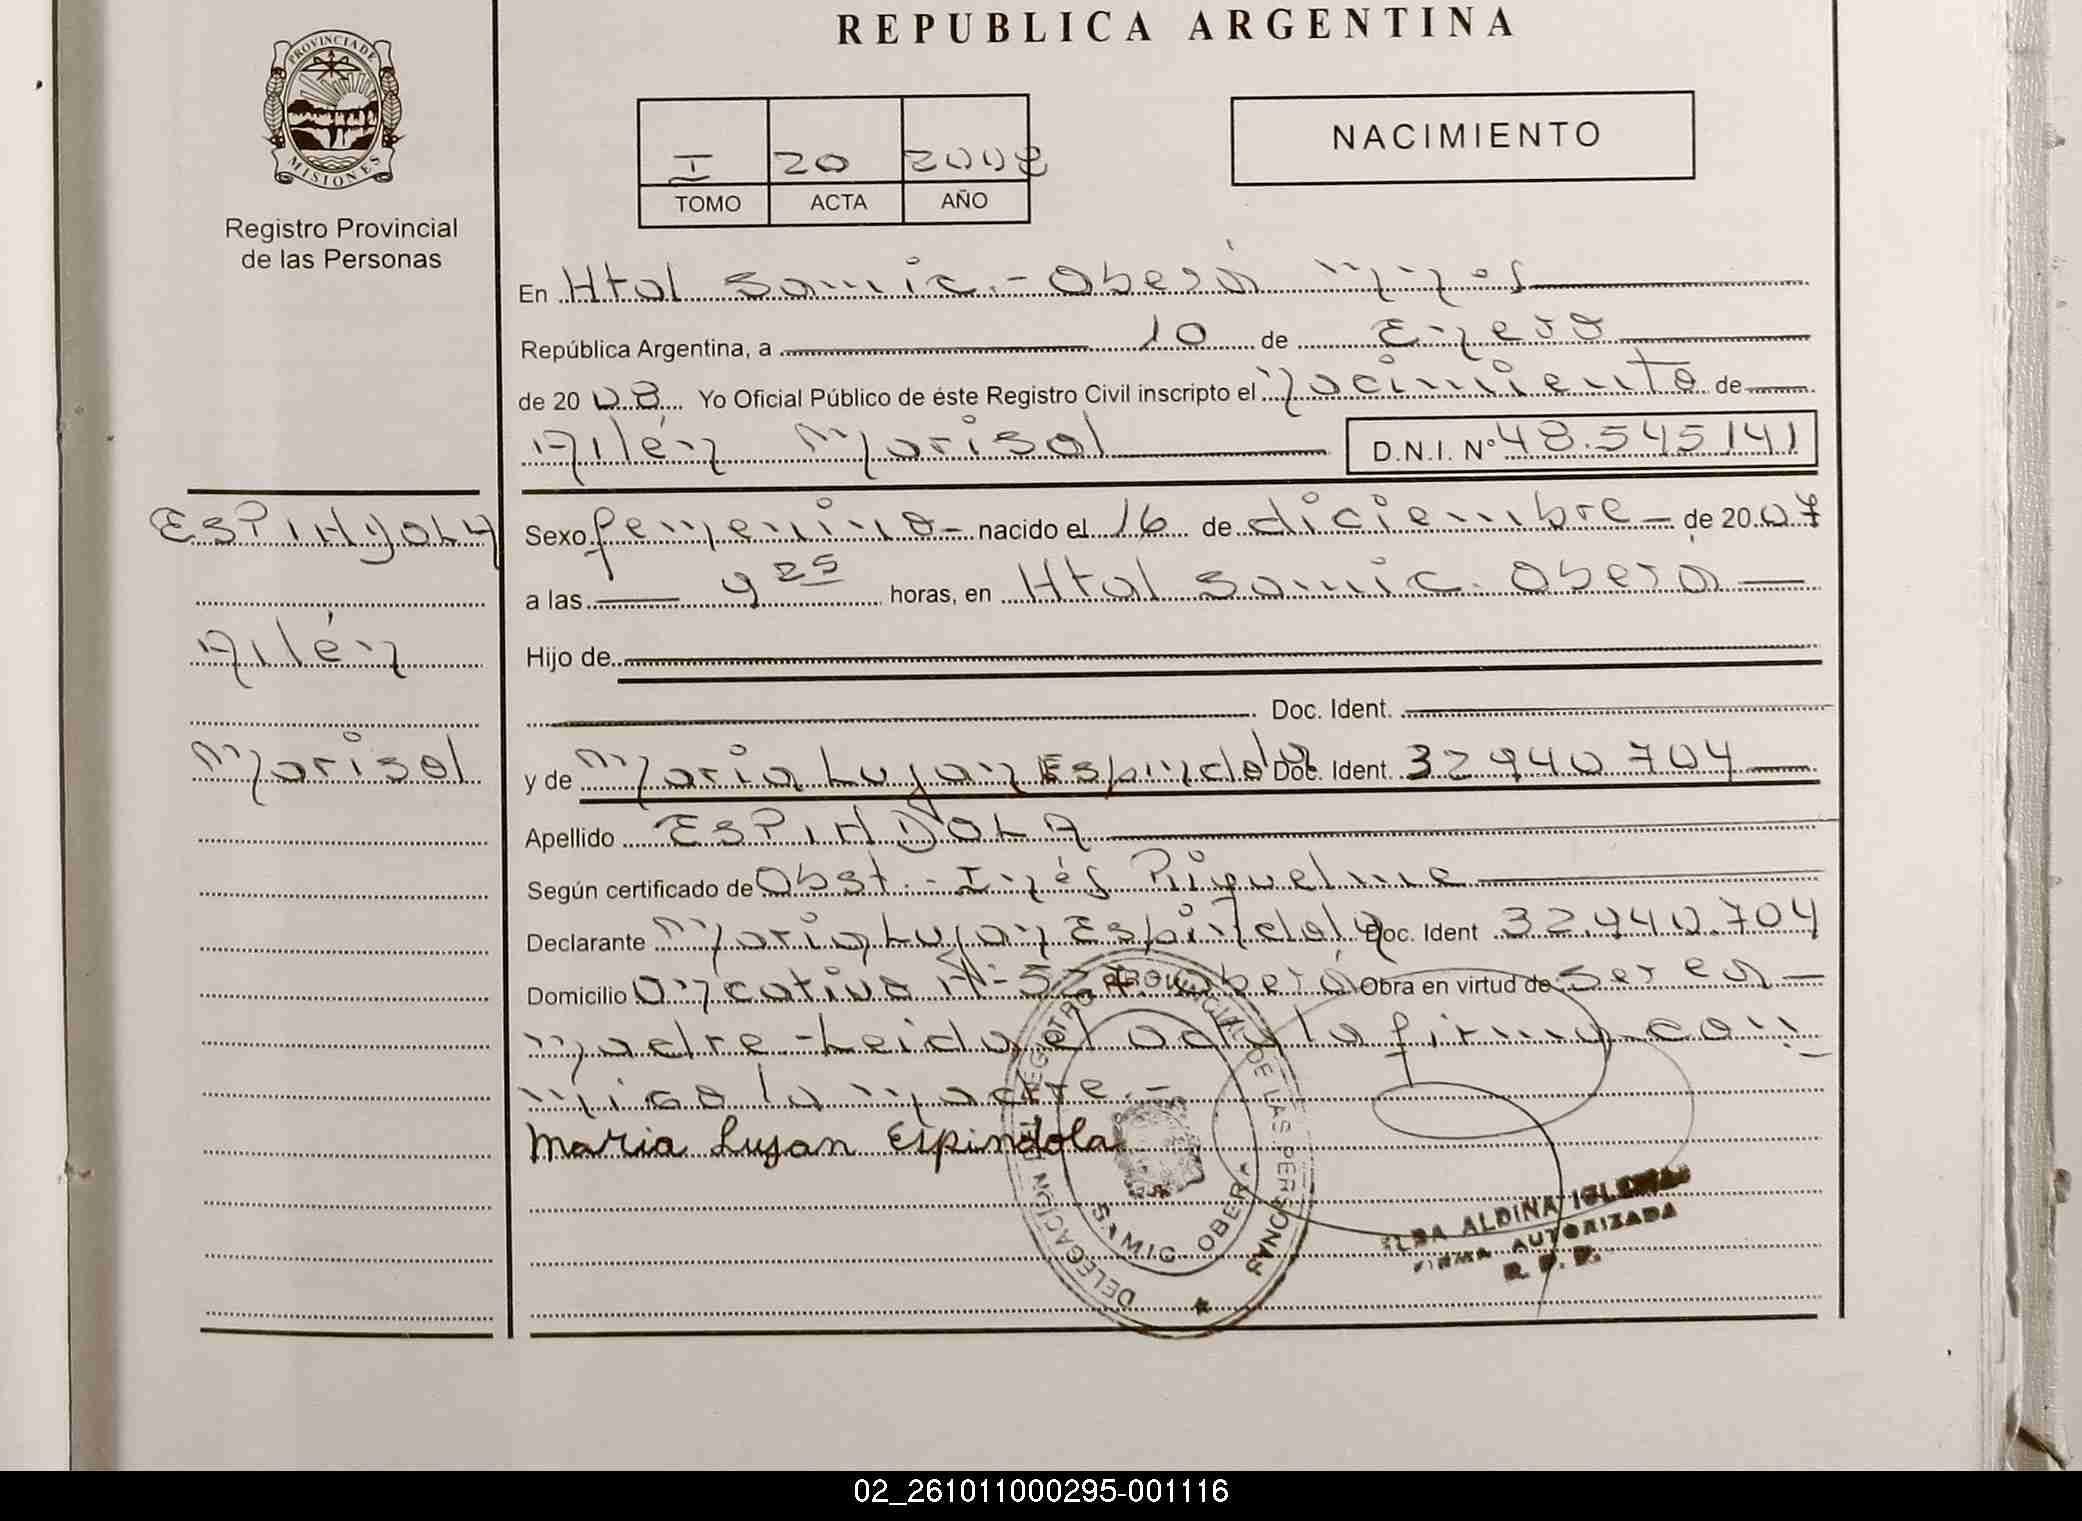 REPUBLICA ARGENTINA
PROVINCIA DE MISIONES
Registro Provincial
de las Personas
I 20 2008
TOMO ACTA AÑO
NACIMIENTO
En Htal Samic.- Oberá Mnes
República Argentina, a 10 de Enero
de 2008 Yo Oficial Público de éste Registro Civil inscripto el Nacimiento de
Ailén Marisol D.N.I. Nº 48.545141
ESPINDOLA
Ailén
Marisol
Sexo femenino- nacido el 16 de diciembre- de 2007
a las 9 25 horas, en Htal Samic. Oberá
Hijo de
Doc. Ident.
y de Maria Lujan Espindola Doc. Ident. 32940704
Apellido ESPINDOLA
Según certificado de Obst.- Inés Riquelme
Declarante Maria Lujan Espindola Doc. Ident 32.940.704
Domicilio Oncativo Nº Oberá Obra en virtud de Ser ea
madre-Leida el acta la firma con
migo la madre.-
Maria Lujan Espindola
DELEGACION REGISTRO PROVINCIAL DE LAS PERSONAS
SAMIC OBERA
ELDA ALDINA IGLESIAS
FIRMA AUTORIZADA
R. P. P.
02_261011000295-001116